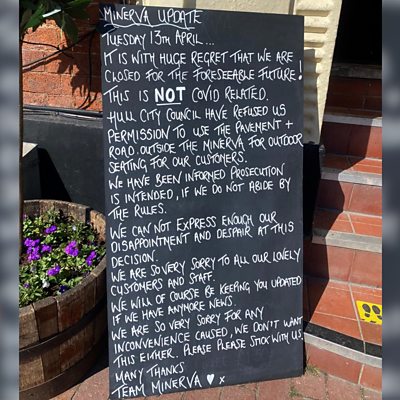 MINERVA UPDATE
TUESDAY 13TH APRIL...
IT IS WITH HUGE REGRET THAT WE ARE
CLOSED FOR THE FORESEEABLE FUTURE!
THIS IS NOT COVID RELATED.
HULL CITY COUNCIL HAVE REFUSED US
PERMISSION TO USE THE PAVEMENT +
ROAD OUTSIDE THE MINERVA FOR OUTDOOR
SEATING FOR OUR CUSTOMERS.
WE HAVE BEEN INFORMED PROSECUTION
IS INTENDED, IF WE DO NOT ABIDE BY
THE RULES.
WE CAN NOT EXPRESS ENOUGH OUR
DISAPPOINTMENT AND DESPAIR AT THIS
DECISION.
WE ARE SO VERY SORRY TO ALL OUR LOVELY
CUSTOMERS AND STAFF.
WE WILL OF COURSE BE KEEPING YOU UPDATED
IF WE HAVE ANYMORE NEWS.
WE ARE SO VERY SORRY FOR ANY
INCONVENIENCE CAUSED, WE DON'T WANT
THIS EITHER. PLEASE PLEASE STICK WITH US.
MANY THANKS
TEAM MINERVA ♥ x